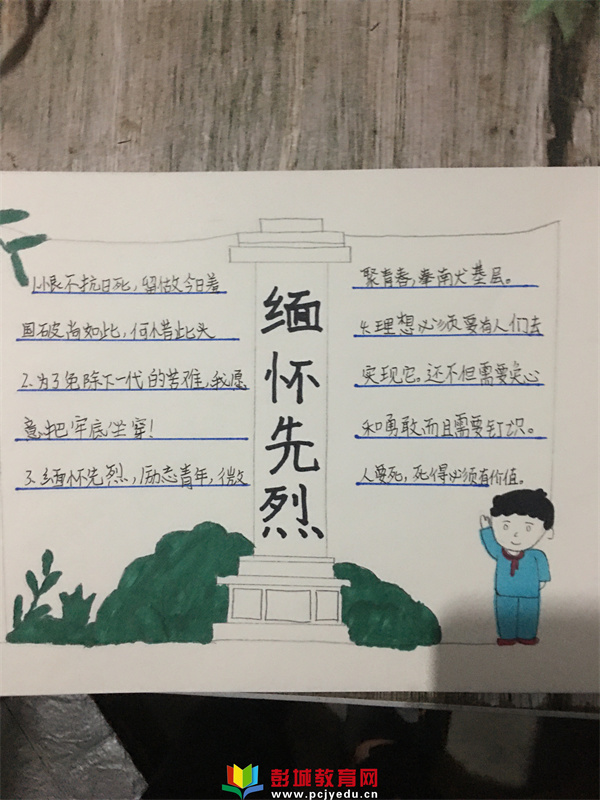 1.恨不抗日死，留做今日羞
国破尚如此，何惜此头
2.为了免除下一代的苦难，我愿
意把牢底坐穿！
3.缅怀先烈，励志青年，微
缅怀先烈
聚青春，奉南犬基层。
4.理想必须要有人们去
实现它。还不但需要决心
和勇敢而且需要知识。
人要死，死得必须有价值。
彭城教育网
www.pcjyedu.cn